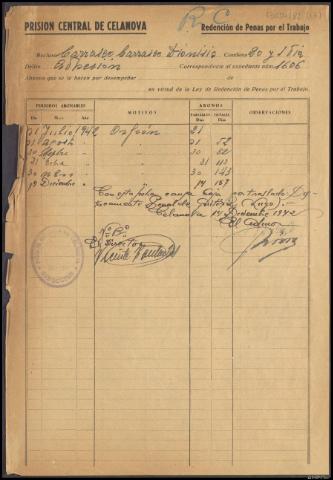 R C
PRISION CENTRAL DE CELANOVA
Redención de Penas por el Trabajo
Recluso Carrasco Carrasco Dionisio Condena 30 y 1 día
Delito Adhesión Corresponde al expediente núm. 1606
Abonos que se le hacen por desempeñar de
en virtud de la Ley de Redención de Penas por el Trabajo.
PERIODOS ABONABLES MOTIVOS ABONOS OBSERVACIONES
Día Mes Año PARCIALES Días TOTALES Días
21 Julio 1942 Orfeón 21
31 Agosto " " 31 52
30 Sepbre " " 30
31 Octbre " " 31 113
30 " " 30 143
19 Diciembre " " 19
Con esta fecha causa baja con traslado Des-
tacamento Penal de (Lugo).-
Celanova 19 Diciembre 1942
El Admor
Vº Bº
El Director